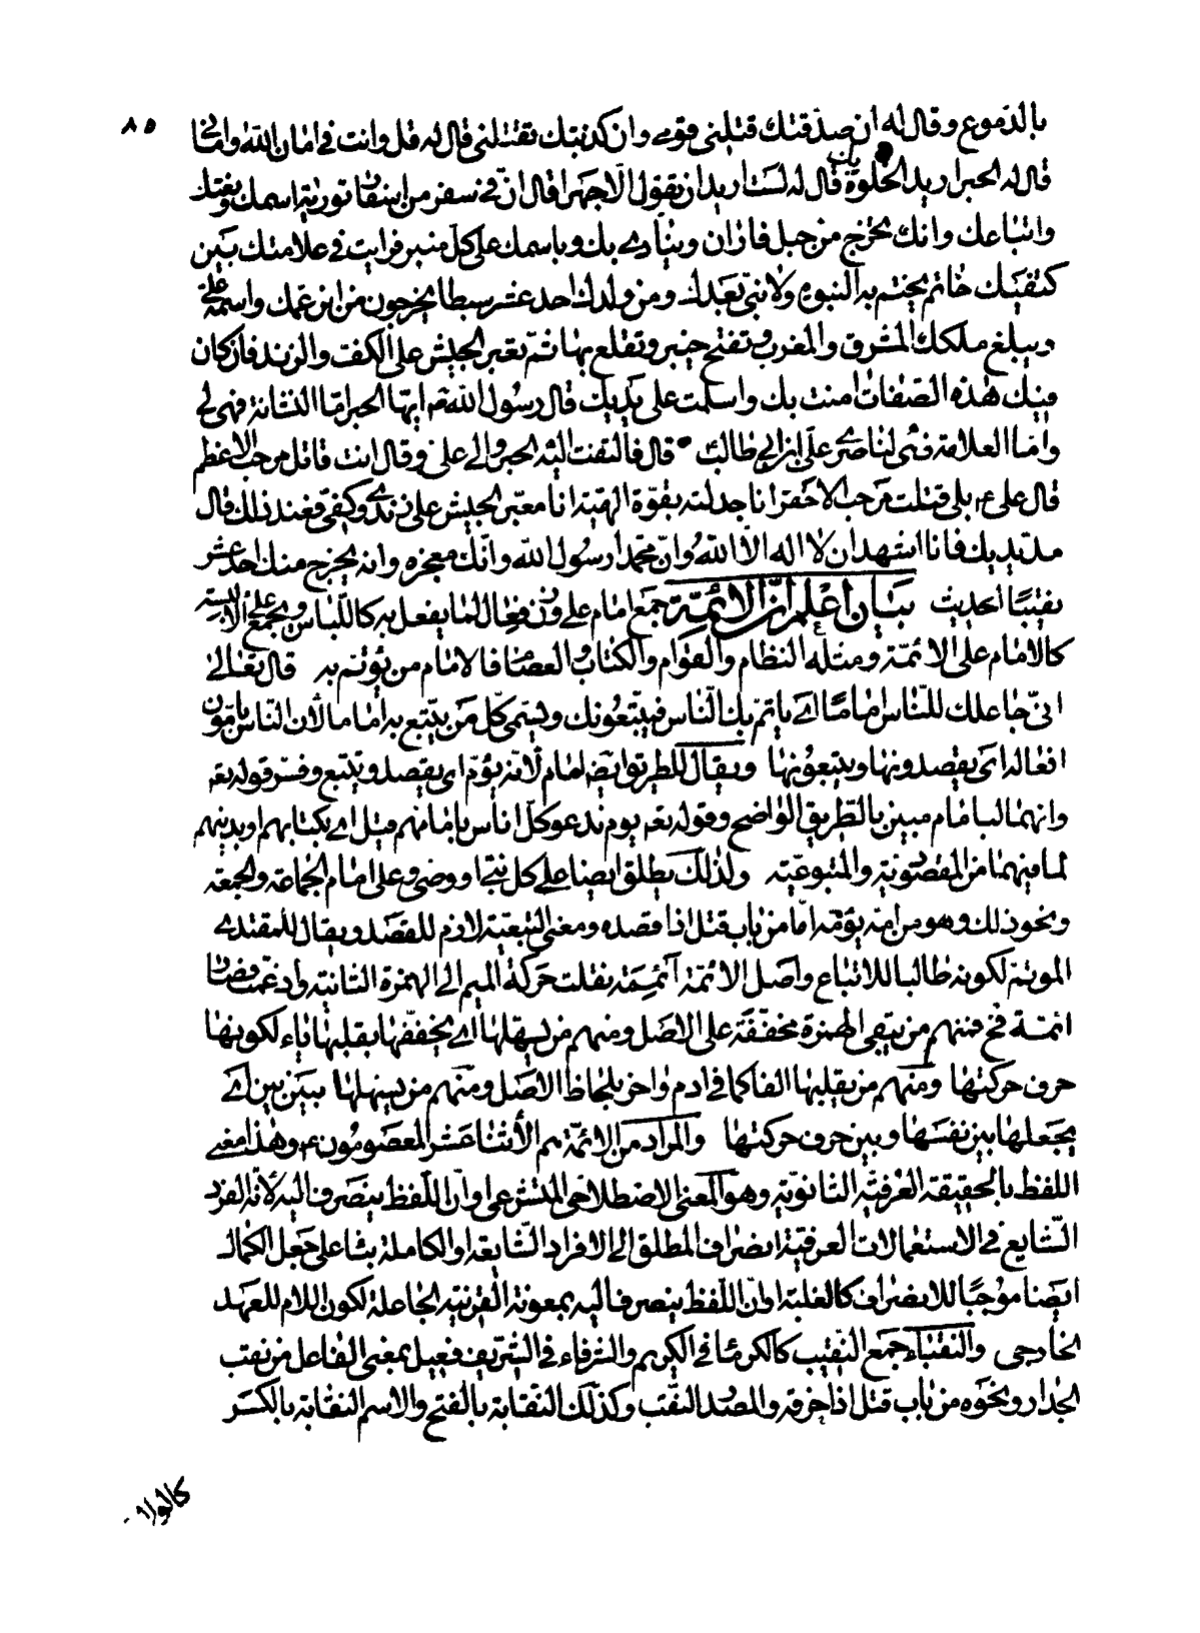 ٨٥
بالدموع وقال له ان صدقتك قتلنى قومے وان كذبتك تقتلنى قال له قل وانت فى امان الله وامانى
قال له الحبر اريد الخلوة بك قال له لست اريد ان تقول الا جهرا قال انّ فى سفر من اسفار تورية اسمك ونعتك
واتباعك وانك تخرج من جبل فاران وينادے بك وباسمك على كلّ منبر فرايت فى علامتك بين
كتفيك خاتم يختم به النبوة ولا نبىّ بعدك ومن ولدك احد عشر سبطا يخرجون من ابن عمك واسمه علىّ
ويبلغ ملكك المشرق والمغرب وتفتح خيبر وتقلع بابها ثم تعبر الجيش على الكفّ والزند فان كان
فيك هذه الصّفات امنت بك واسلمت على يديك قال رسول الله ايها الحبر امّا الشامة فهى لى
وامّا العلامة فهى لناصرى علىّ بن ابى طالب قال فالتفت اليه الحبر والى على وقال انت قاتل مرحب الاعظم
قال على بلى قتلت مرحب الاحقر انا جدلته بقوّة الهيّة انا معبر الجيش على زندى وكفّى فعند ذلك قال
مدّ يديك فانا اشهد ان لا اله الا الله وانّ محمدا رسول الله وانّك معجزه وانه يخرج منك احد عشر
نقيبًا الحديث بيان اعلم انّ الائمّة جمع امام على وزن فعال لما يفعل به كاللّباس ويجمع على الالبسة
كالامام على الائمّة ومثله النظام والقوام والكتاب والعصام فالامام من يؤتم به قال تعالى
انى جاعلك للنّاس امامًا اى ياتمّ بك الناس فيتبعونك ويسمى كل من يتبع به اماما لان النّاس ياتمون
افعاله اى يقصدونها ويتبعونها ويقال للطريق ايضا امام لانه يؤمّ اى يقصد ويتّبع وفسّر قوله تعالى
وانهما لبامام مبين بالطّريق الواضح وقوله تعالى يوم ندعو كلّ اناس بامامهم قيل اى بكتابهم او بدينهم
لما فيهما من المقصوديّة والمتبوعيّة ولذلك يطلق ايضا على كل نبىّ او وصىّ وعلى امام الجماعة والجمعة
ونحو ذلك وهو من امّه يؤمّه امّا من باب قتل اذا قصده ومعنى التبعيّة لازم للقصد ويقال للمقتدى
الموتم لكونه طالبا للاتباع واصل الائمّة أئممة نقلت حركة الميم الى الهمزة الثانية وادغمت فصار
ائمّة فمنهم من يبقى الهمزة محقّقة على الاصل ومنهم من يسهلها اى يخففها بقلبها ياء لكونها
حرف حركتها ومنهم من يقلبها الفا كما فى ادم واخر بلحاظ الاصل ومنهم من يسهلها بين بين اى
يجعلها بين نفسها وبين حرف حركتها والمراد من الائمّة هم الأثنا عشر المعصومون وهذا معنى
اللفظ بالحقيقة العرفيّة الثانويّة وهو المعنى الاصطلاحى المتشرعى او انّ اللفظ ينصرف اليه لأنه الفرد
الشّايع فى الاستعمالات العرفيّة انصراف المطلق الى الافراد الشّايعة او الكاملة بناء على جعل الكمال
ايضا موجبًا للانصراف كالغلبة او انّ اللفظ ينصرف اليه بمعونة القرينة الجاعلة لكون اللام للعهد
الخارجى والنقباء جمع النقيب كالكرماء فى الكريم والشرفاء فى الشريف فعيل بمعنى الفاعل من نقب
الجدار ونحوه من باب قتل اذا خرقه والمصدر النقب وكذلك النقابة بالفتح والاسم النقابة بالكسر
كالولا